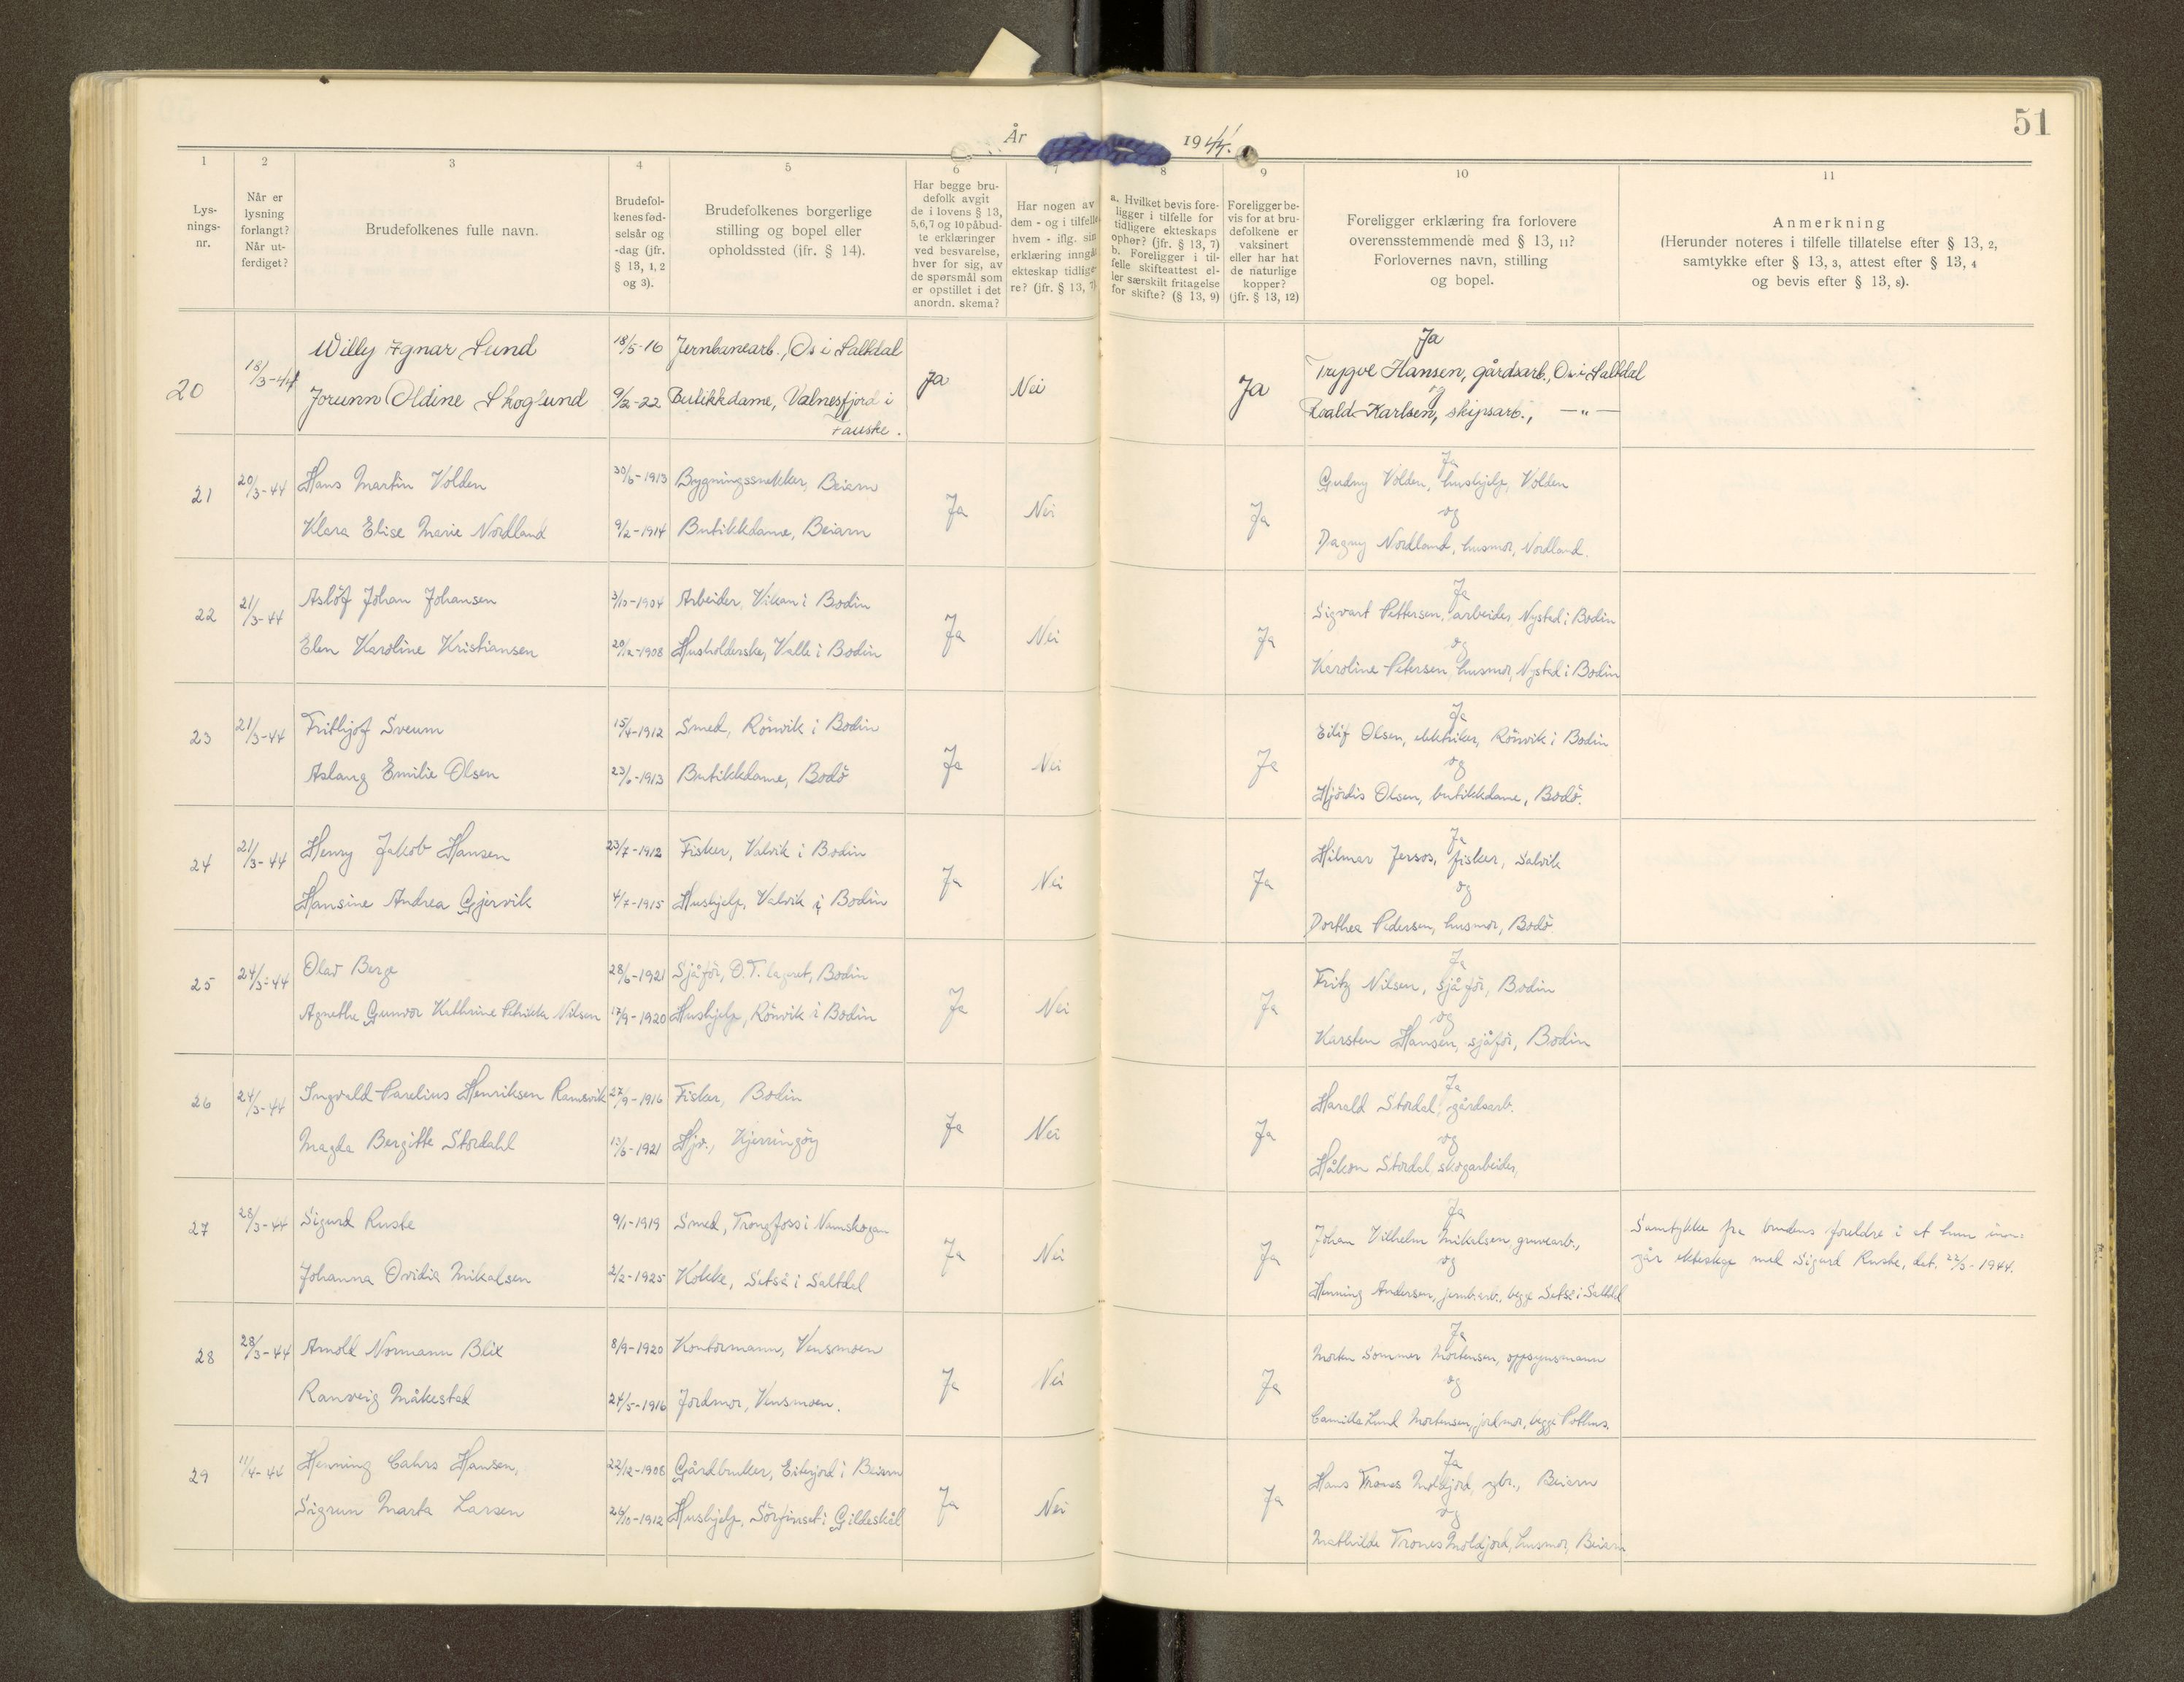 51
År 1944.
1 2 3 4 5 6 7 8 9 10 11
Lys-
nings-
nr.
Når er
lysning
forlangt?
Når ut-
ferdiget?
Brudefolkenes fulle navn.
Brudefol-
kenes fød-
selsår og
-dag (jfr.
§ 13, 1, 2
og 3).
Brudefolkenes borgerlige
stilling og bopel eller
opholdssted (jfr. § 14).
Har begge bru-
defolk avgit
de i lovens § 13,
5,6,7 og 10 påbud-
te erklæringer
ved besvarelse,
hver for sig, av
de spørsmål som
er opstillet i det
anordn. skema?
Har nogen av
dem - og i tilfelle
hvem - iflg. sin
erklæring inngåt
ekteskap tidlige-
re? (jfr. § 13, 7)
a. Hvilket bevis fore-
ligger i tilfelle for
tidligere ekteskaps
ophør? (jfr. § 13, 7)
b. Foreligger i til-
felle skifteattest el-
ler særskilt fritagelse
for skifte? (§ 13, 9)
Foreligger be-
vis for at bru-
defolkene er
vaksinert
eller har hat
de naturlige
kopper?
(jfr. § 13, 12)
Foreligger erklæring fra forlovere
overensstemmende med § 13, 11?
Forlovernes navn, stilling
og bopel.
Anmerkning
(Herunder noteres i tilfelle tillatelse efter § 13, 2,
samtykke efter § 13, 3, attest efter § 13, 4
og bevis efter § 13, 8).
20 18/3-44 Willy Ignar Lund 18/5-16 Jernbanearb., Os i Saltdal Ja Nei Ja Ja
Trygve Hansen, gårdsarb., Os i Saltdal
og
Jorunn Oldine Skoglund 9/2-22 Butikkdame, Valnesfjord i
Fauske.
Roald Karlsen, skipsarb., —"—
21 20/3-44 Hans Martin Volden 30/6-1913 Bygningssnekker, Beiarn Ja Nei Ja Ja
Gudny Volden, hushjelp, Volden
og
Klara Elise Marie Nordland 9/2-1914 Butikkdame, Beiarn
Dagny Nordland, husmor, Nordland.
22 21/3-44 Aslöf Johan Johansen 3/10-1904 Arbeider, Vikan i Bodin Ja Nei Ja Ja
Sigvart Pettersen, arbeider, Nystad i Bodin
og
Elen Karoline Kristiansen 20/12-1908 Husholderske, Valle i Bodin
Karoline Petersen, husmor, Nystad i Bodin
23 21/3-44 Frithjof Sveum 15/4-1912 Smed, Rönvik i Bodin Ja Nei Ja Ja
Eilif Olsen, elektriker, Rönvik i Bodin
og
Aslaug Emilie Olsen 23/6-1913 Butikkdame, Bodö
Hjördis Olsen, butikkdame, Bodö.
24 21/3-44 Henry Jakob Hansen 23/7-1912 Fisker, Valvik i Bodin Ja Nei Ja Ja
Hilmar Jersos, fisker, Salvik
og
Hansine Andrea Gjervik 4/7-1915 Hushjelp, Valvik i Bodin
Dorthea Pedersen, husmor, Bodö.
25 24/3-44 Olav Berge 28/6-1921 Sjåför, O.T. lageret, Bodin Ja Nei Ja Ja
Fritz Nilsen, sjåför, Bodin
og
Agnethe Gunvor Kathrine Nilsen 17/9-1920 Hushjelp, Rönvik i Bodin
Karsten Hansen, sjåför, Bodin
26 24/3-44 Ingvald Parelius Henriksen Ramsvik 27/9-1916 Fisker, Bodin Ja Nei Ja Ja
Harald Stordal, gårdsarb.
og
Magda Bergitte Stordahl 13/6-1921 Hjv., Kjerringöy
Håkon Stordal, skogarbeider,
27 28/3-44 Sigurd Ruste 9/1-1919 Smed, Trongfoss i Namskogan Ja Nei Ja Ja
Johan Vilhelm Mikalsen, gruvearb.,
og
Samtykke fra brudens foreldre i at hun inn-
går ekteskap med Sigurd Ruste, dat. 22/3-1944.
Johanna Ovidia Mikalsen 2/2-1925 Kokke, Setså i Saltdal
Henning Andersen, jernb.arb., begge Setså i Saltdal
28 28/3-44 Arnold Normann Blix 8/9-1920 Kontormann, Vensmoen Ja Nei Ja Ja
Morten Sommer Mortensen, oppsynsmann
og
Ranveig Måkestad 24/5-1916 Jordmor, Vensmoen.
Camilla Lund Mortensen, jordmor, begge Pothus.
29 11/4-44 Henning Cahrs Hansen, 22/12-1908 Gårdbruker, Eiterjord i Beiarn Ja Nei Ja Ja
Hans Trones Moldjord, gbr., Beiarn
og
Sigrun Marta Larsen 26/10-1912 Hushjelp, Sörfinset i Gildeskål
Mathilde Trones Moldjord, husmor, Beiarn